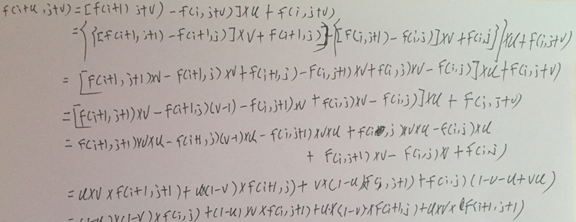 f(i+u,j+v)=[f(i+1,j+v)-f(i,j+v)]×u+f(i,j+v)
={{[f(i+1,j+1)-f(i+1,j)]×v+f(i+1,j)}-{[f(i,j+1)-f(i,j)]×v+f(i,j)}}×u+f(i,j+v)
=[f(i+1,j+1)×v-f(i+1,j)×v+f(i+1,j)-f(i,j+1)×v+f(i,j)×v-f(i,j)]×u+f(i,j+v)
=[f(i+1,j+1)×v-f(i+1,j)(v-1)-f(i,j+1)×v+f(i,j)×v-f(i,j)]×u+f(i,j+v)
=f(i+1,j+1)×v×u-f(i+1,j)(v-1)×u-f(i,j+1)×v×u+f(i,j)×v×u-f(i,j)×u
+f(i,j+1)×v-f(i,j)×v+f(i,j)
=u×v×f(i+1,j+1)+u×(1-v)×f(i+1,j)+v×(1-u)f(i,j+1)+f(i,j)(1-v-u+vu)
=(1-u)×(1-v)×f(i,j)+(1-u)×v×f(i,j+1)+u×(1-v)×f(i+1,j)+u×v×f(i+1,j+1)